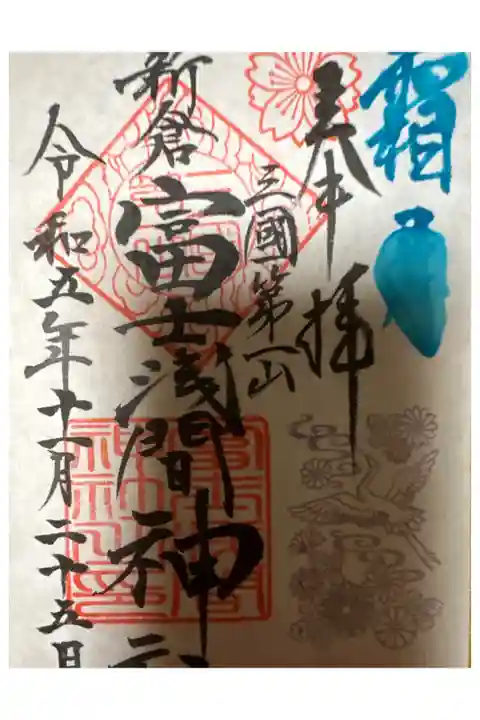 霜月
奉拝
三國第一山
新倉富士浅間神社
令和五年十一月二十五日